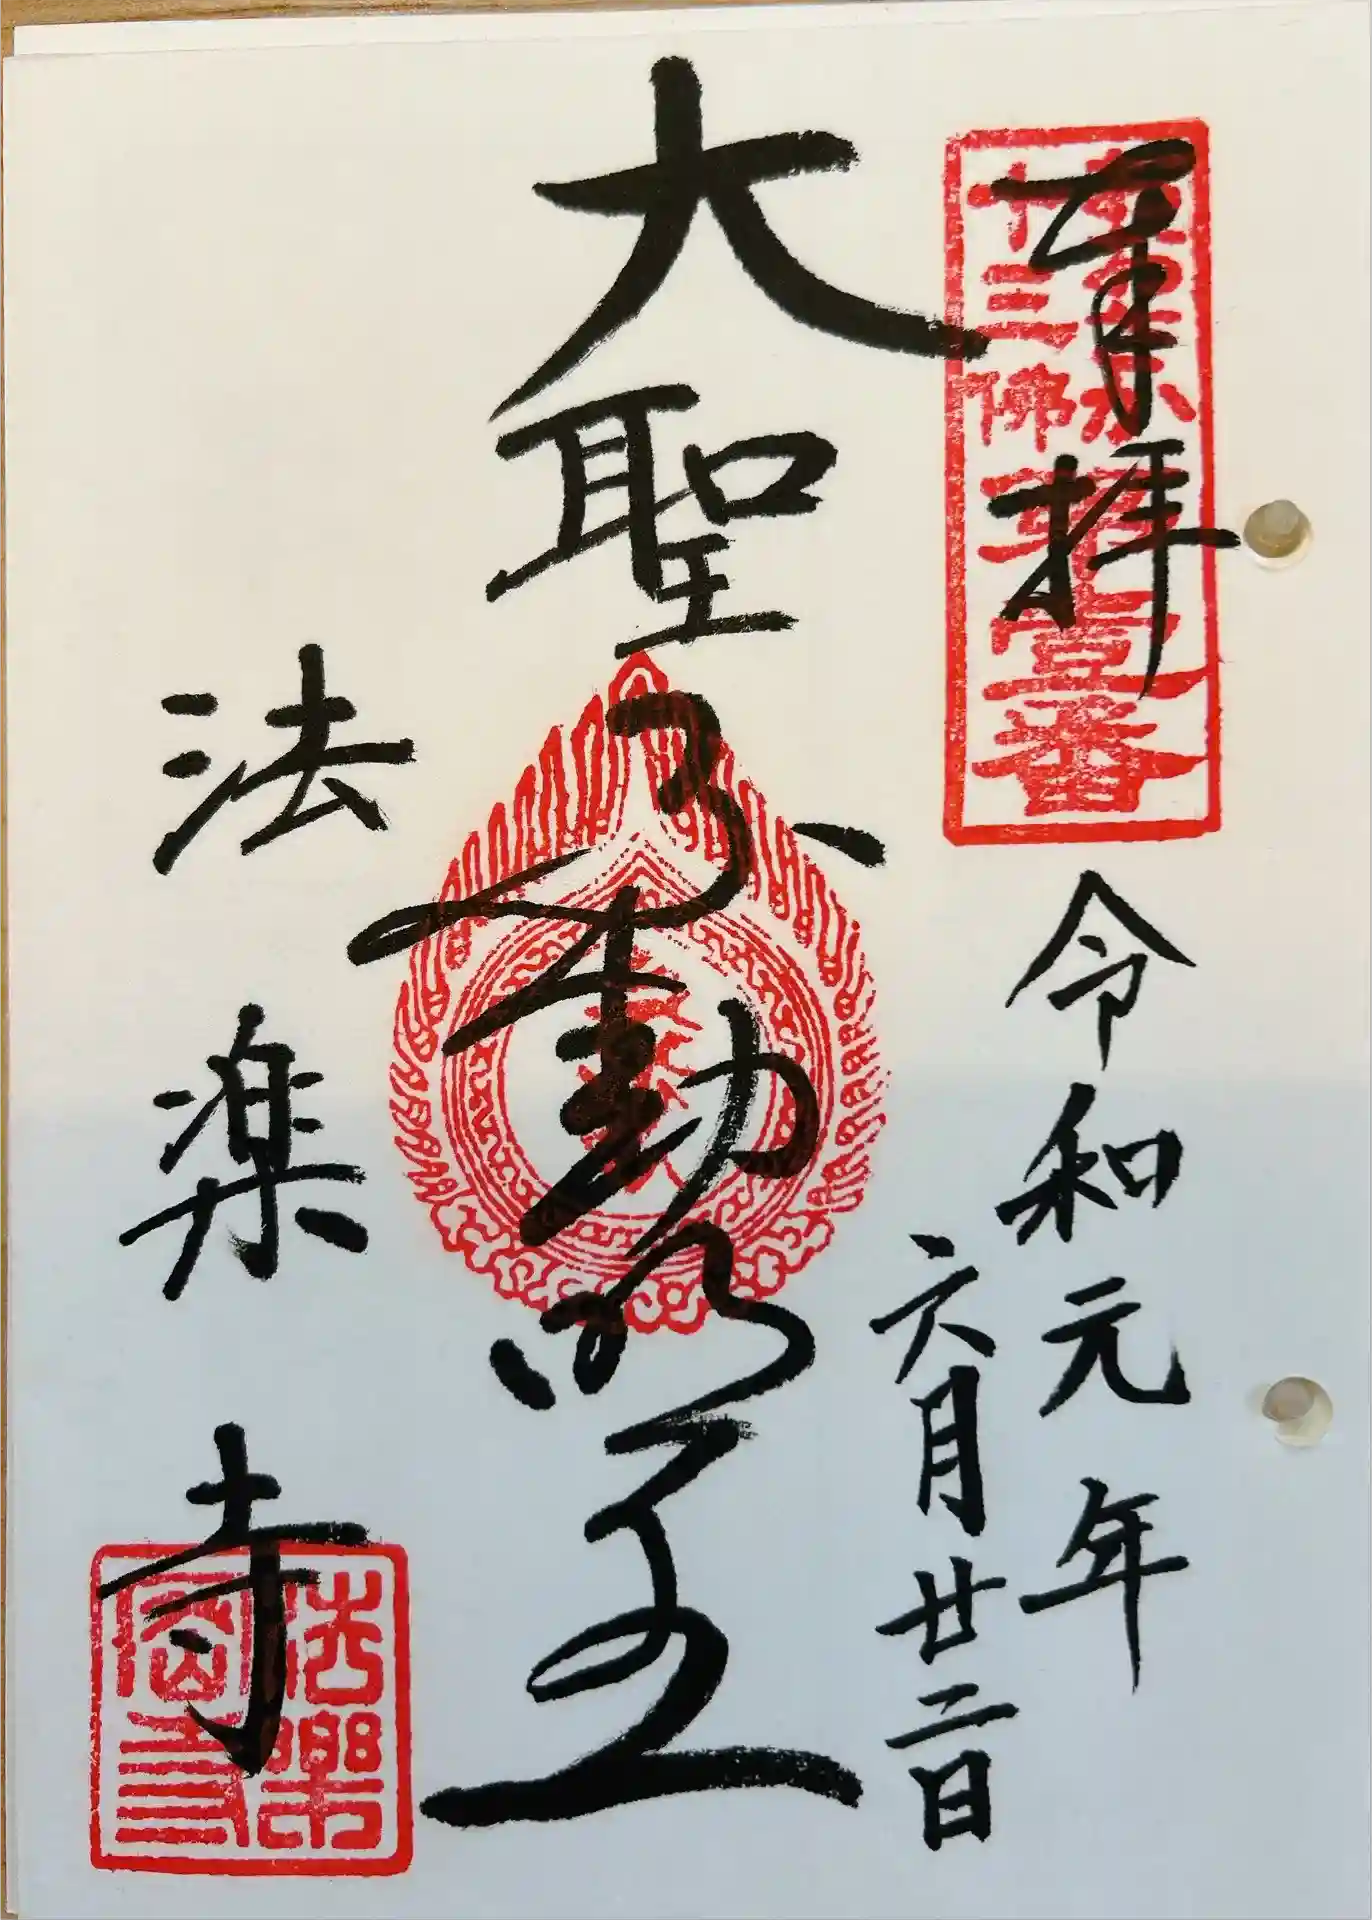 奉拝
十三佛
壹番
令和元年
六月廿二日
大聖不動明王
法楽寺
法樂